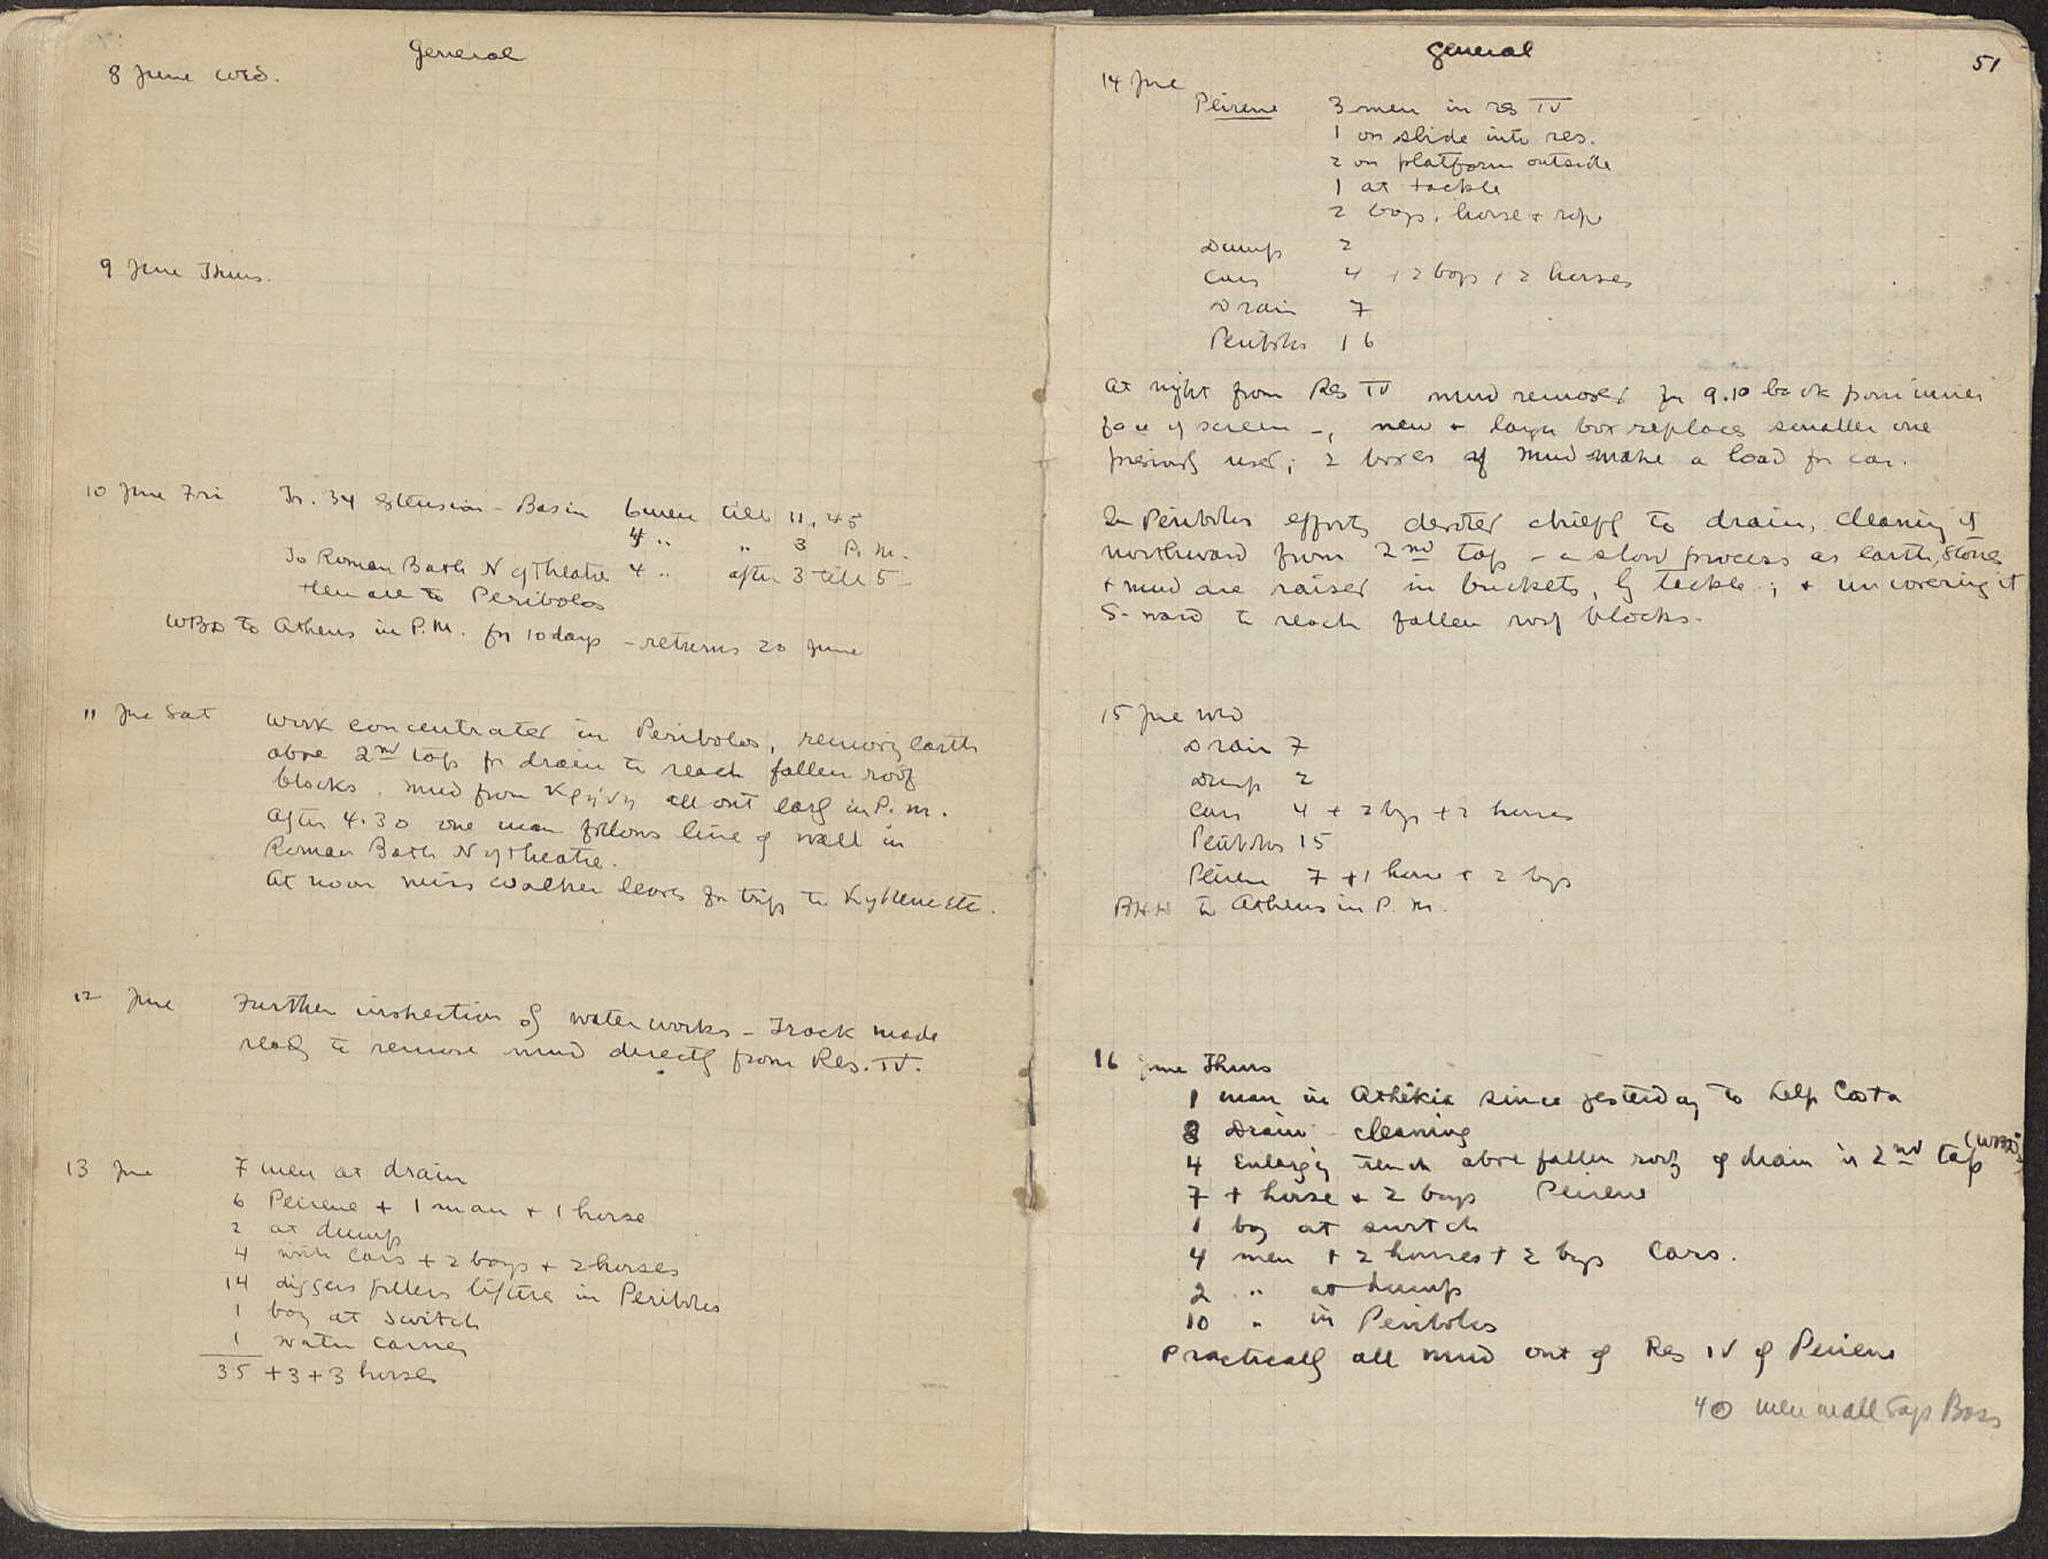 General
8 June Wed.
9 June Thurs.
10 June Fri Tr. 34 extension - Basin 6 men till 11,45
4 " " 3 P.M.
To Roman Bath N of Theatre 4 " after 3 till 5 -
then all to Peribolos
WBD to Athens in P.M. for 10 days - returns 20 June
11 June Sat Work concentrated in Peribolos, removing earth
above 2nd tap for drain to reach fallen roof
blocks. mud from Κρήνη all out early in P.M.
After 4.30 one man follows line of wall in
Roman Bath N of Theatre.
At noon Miss Walker leaves for trip to Kyllene etc.
12 June Further inspection of water works - Track made
ready to remove mud directly from Res. IV.
13 June 7 men at drain
6 Peirene + 1 man + 1 horse
2 at dump
4 with cars + 2 boys + 2 horses
14 diggers fillers lifters in Peribolos
1 boy at switch
1 water carrier
35 + 3 + 3 horses
General 51
14 June
Peirene 3 men in res IV
1 on slide into res.
2 on platform outside
1 at tackle
2 boys, horse + rope
Dump 2
Cars 4 , 2 boys , 2 horses
Drain 7
Peribolos 16
At night from Res IV mud removed for 9.10 back from inner
face of screen -, new + larger box replaces smaller one
previously used; 2 boxes of mud make a load for car.
In Peribolos efforts devoted chiefly to drain, cleaning it
northward from 2nd tap - a slow process as earth, stones
+ mud are raised in buckets, by tackle; + uncovering it
S-ward to reach fallen roof blocks.
15 June Wed
Drain 7
Dump 2
Cars 4 + 2 boys + 2 horses
Peribolos 15
Peirene 7 + 1 horse + 2 boys
BHH to Athens in P.M.
16 June Thurs
1 man in Athikia since yesterday to help Costa
8 Drain - cleaning
4 Enlarging trench above fallen roof of drain in 2nd tap (WBD's
7 + horse + 2 boys Peirene
1 boy at switch
4 men + 2 horses + 2 boys Cars.
2 " at dump
10 " in Peribolos
Practically all mud out of Res IV of Peirene
40 men in all says Boss